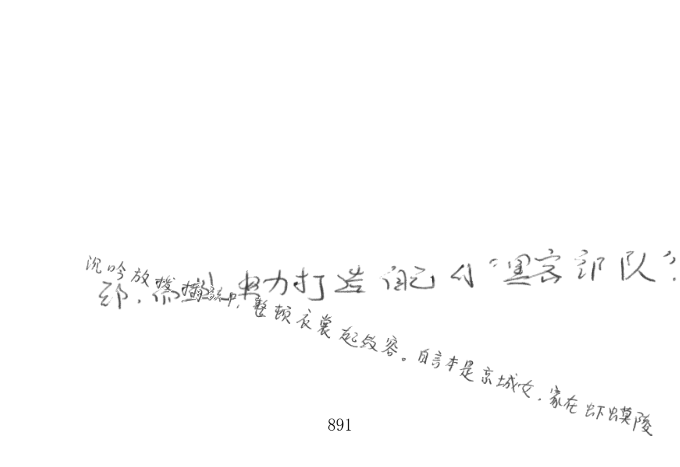 沉吟放拨插弦中，整顿衣裳起敛容。自言本是京城女，家在虾蟆陵
部，努力打造自己的“黑客部队”
891